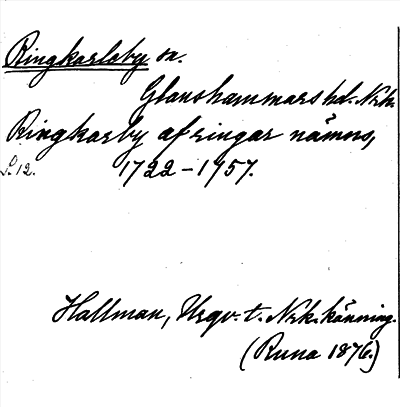 Ringkarlaby sn.
Glanshammars hd. Nrk.
Ringkarby af ringar nämns,
S. 12. 1722-1757.
Hallman, Ursv. t. Nrk. känning.
(Runa 1876.)